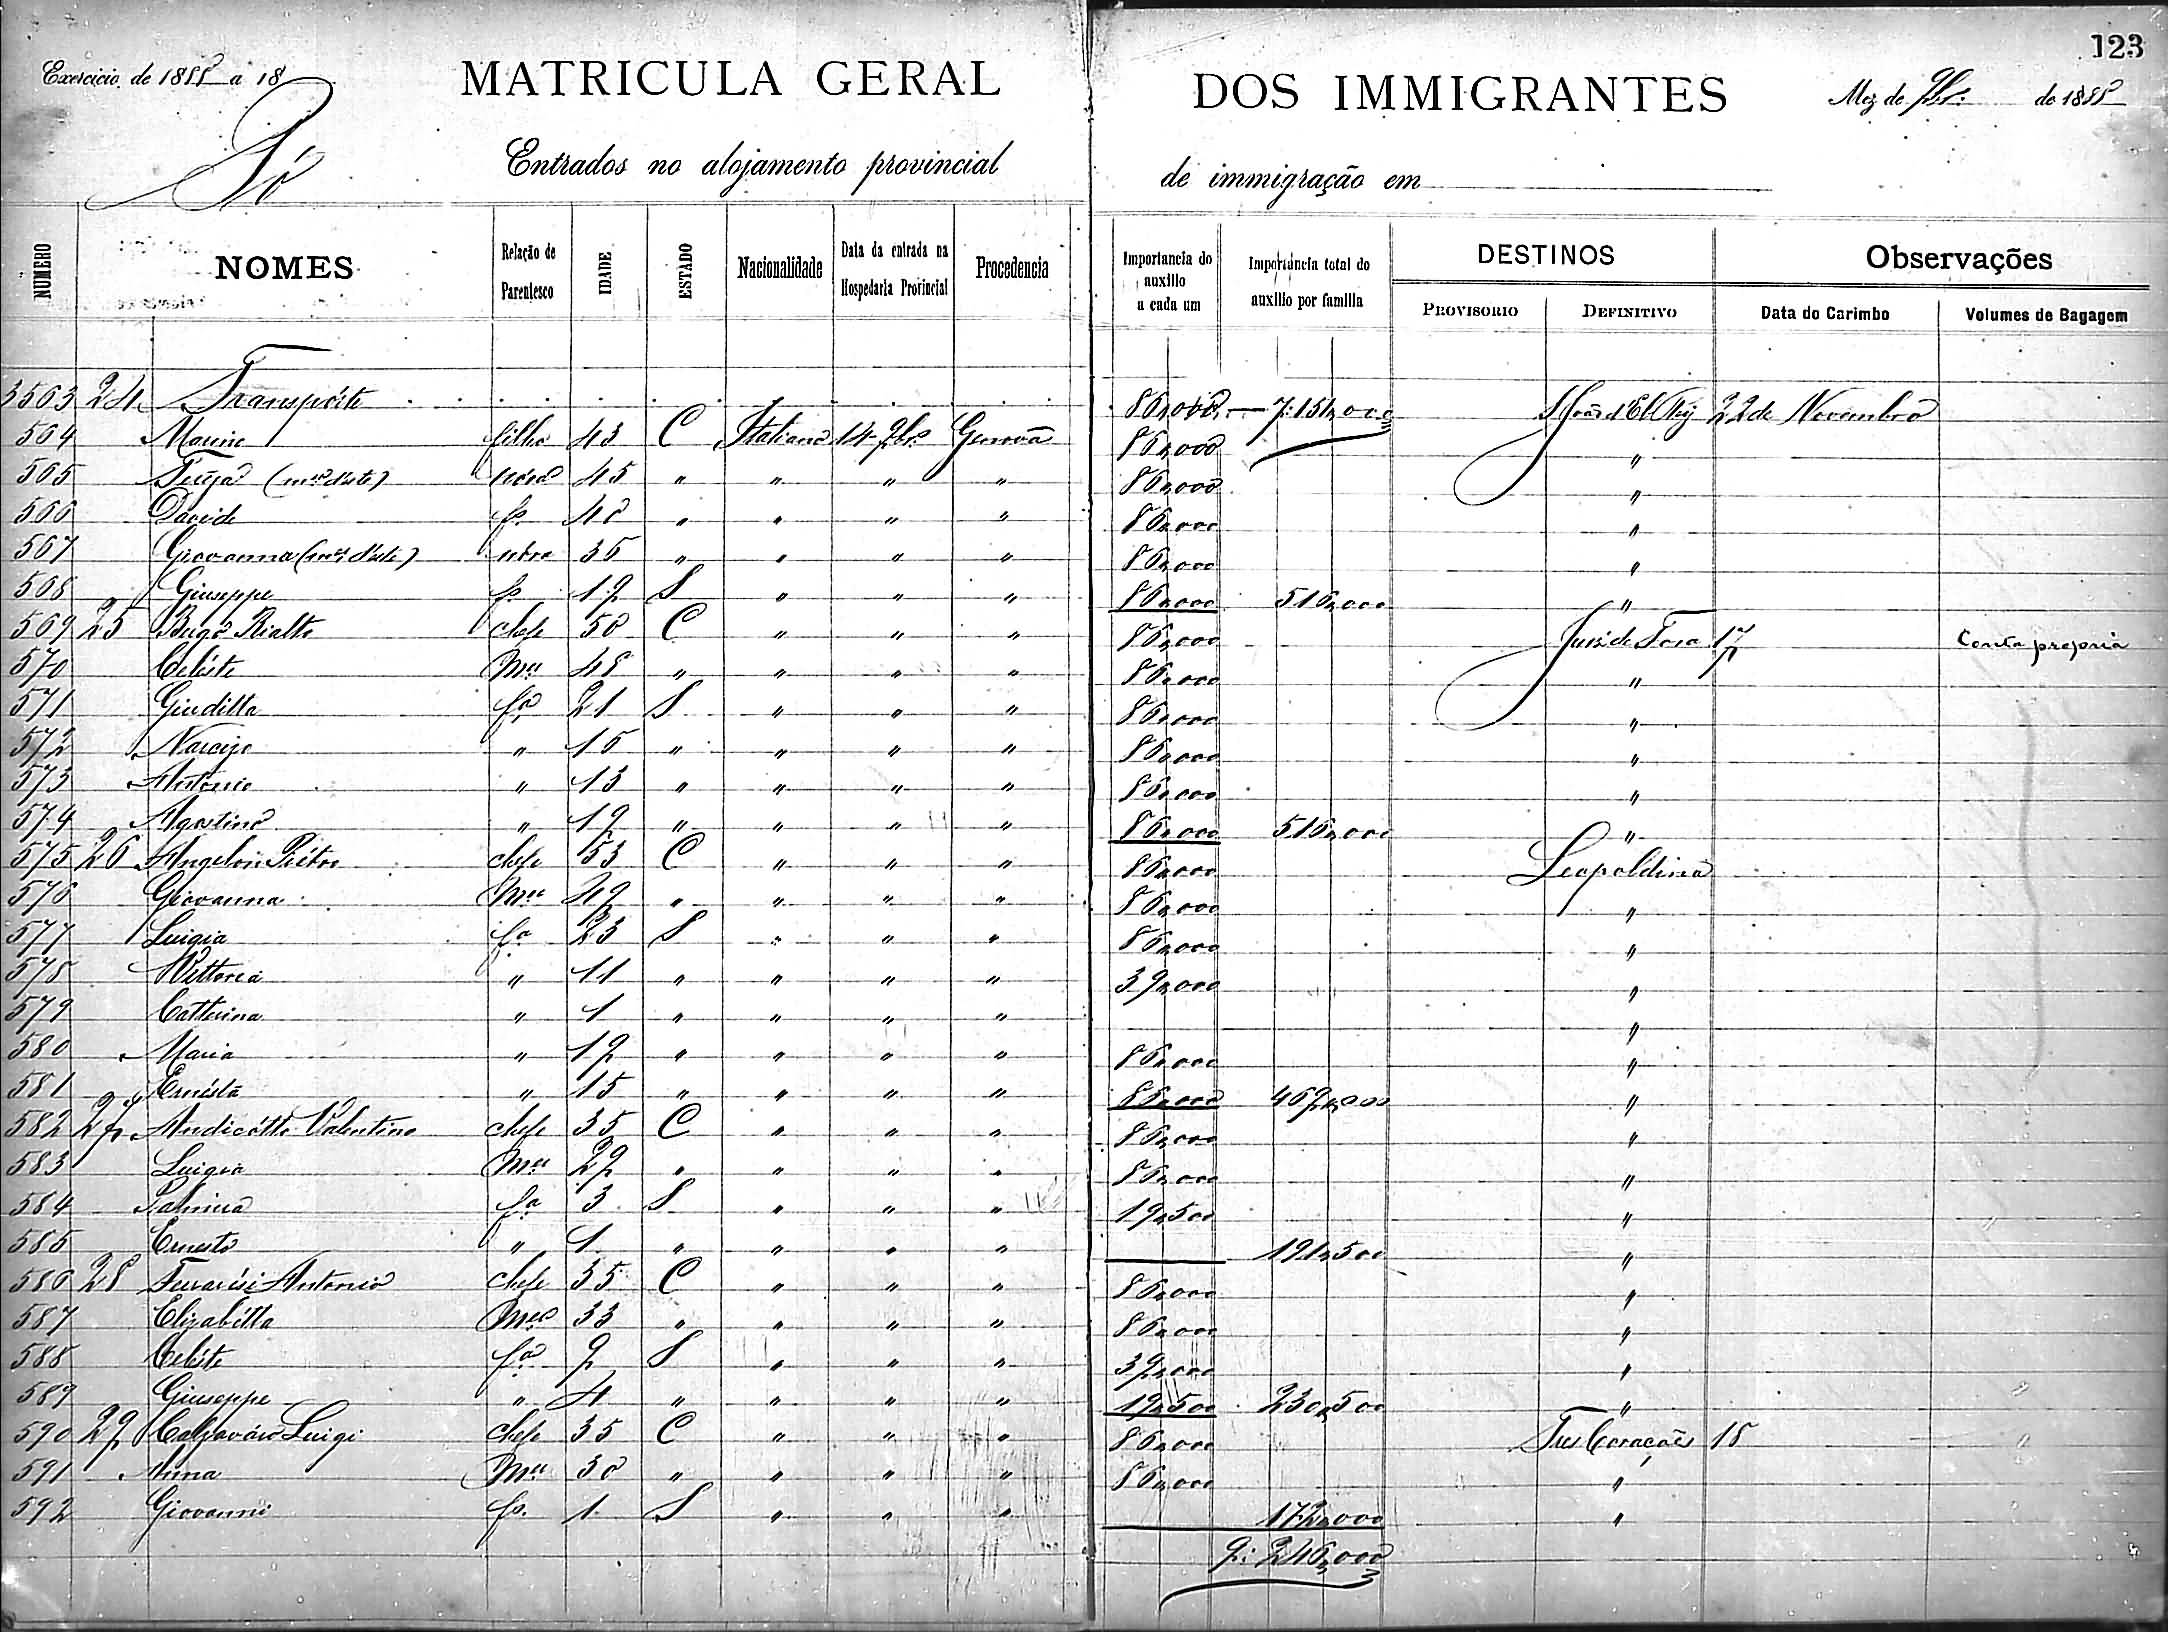 123
Exercicio de 1888 a 18
MATRICULA GERAL DOS IMMIGRANTES
Mez de 9br.º de 1888
Entrados no alojamento provincial de immigração em
NUMERO NOMES Relação de Parentesco IDADE ESTADO Nacionalidade Data da entrada na Hospedaria Provincial Procedencia Importancia do auxilio a cada um Importancia total do auxilio por familia DESTINOS Observações
PROVISORIO DEFINITIVO Data do Carimbo Volumes de Bagagem
3563 24 Transpórte 86,000 7:151,000 22 de Novembro
564 filho 43 C Italiana 14 9br.º Genova 86,000 "
565 nora 45 " " " " 86,000 "
566 Davide fº 40 " " " " 86,000 "
567 Giovanna nora 35 " " " " 86,000 "
568 Giuseppe fº 19 S " " " 86,000 516,000 "
569 25 Rialto chefe 50 C " " " 86,000 Juiz de Fora 17 Conta propria
570 Celéste Mer 48 " " " " 86,000 "
571 Giuditta fª 21 S " " " 86,000 "
572 Narcizo " 16 " " " " 86,000 "
573 Antonio " 13 " " " " 86,000 "
574 Agostino " 19 " " " " 86,000 516,000 "
575 26 Angeloni Piétro chefe 53 C " " " 86,000 Leopoldina
576 Giovanna Mer 49 " " " " 86,000 "
577 Luigia fª 23 S " " " 86,000 "
578 Vittoria " 11 " " " " 39,000 "
579 Catterina " 1 " " " " "
580 Maria " 19 " " " " 86,000 "
581 Ernésta " 15 " " " " 86,000 469,000 "
582 27 Valentino chefe 35 C " " " 86,000 "
583 Luigia Mer 29 " " " " 86,000 "
584 fª 3 S " " " 19,500 "
585 Ernesto " 1 " " " " 191,500 "
586 28 Antonio chefe 35 C " " " 86,000 "
587 Elizabétta Mer 33 " " " " 86,000 "
588 Celéste fª 9 S " " " 39,000 "
589 Giuseppe " 4 " " " " 19,500 230,500 "
590 29 Luigi chefe 35 C " " " 86,000 Tres Corações 18
591 Anna Mer 30 " " " " 86,000 "
592 Giovanni fº 1 S " " " 172,000 "
9:246,000